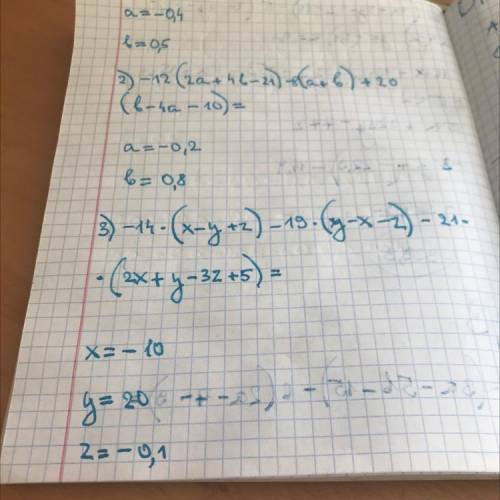 a=-0,4
b=0,5
2) -12(2a+4b-21)-8(a+b)+20
(b-4a-10)=
a=-0,2
b=0,8
3) -14·(x-y+z)-19·(y-x-z)-21·
·(2x+y-3z+5)=
x=-10
y=20
z=-0,1